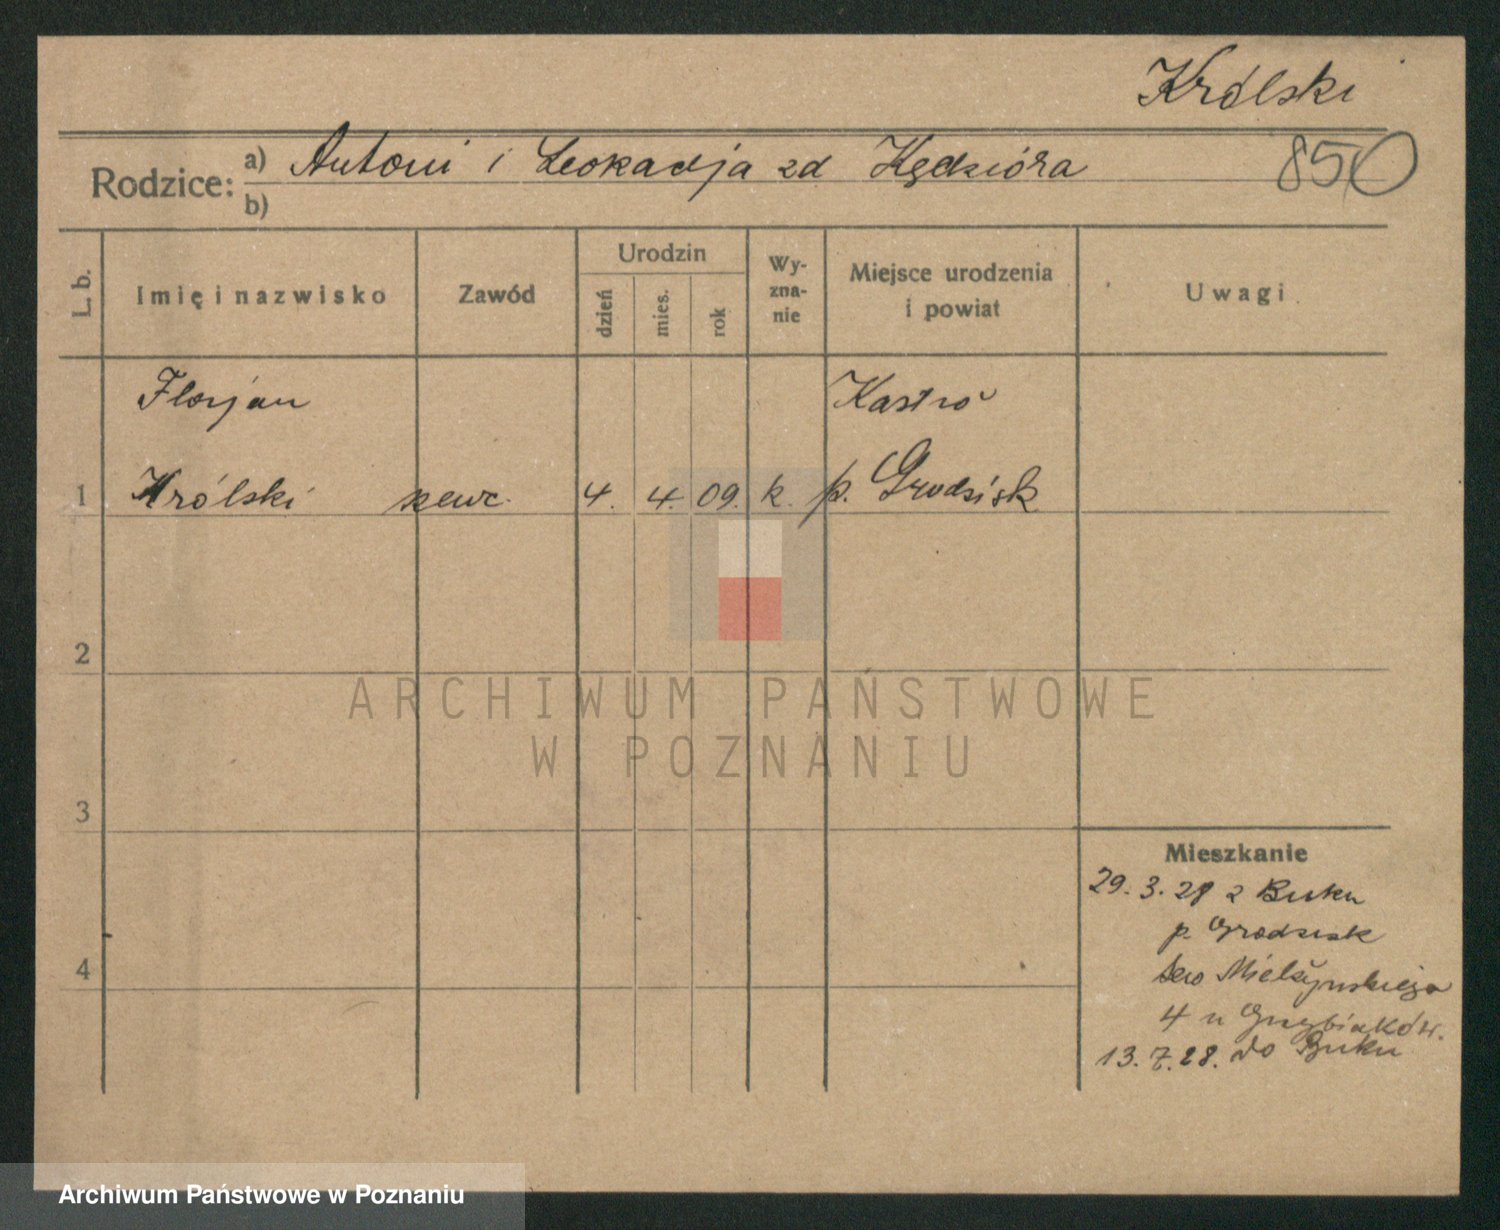 Królski
Rodzice: a) Antoni i Leokadja zd Kędzióra
850
b)
L. b.
Imię i nazwisko
Zawód
Urodzin
dzień
mies.
rok
Wy-
zna-
nie
Miejsce urodzenia
i powiat
Uwagi
Florjan
1 Królski
4. 4. 09. k. p. Grodzisk
2
3
4
ARCHIWUM PAŃSTWOWE
W POZNANIU
Mieszkanie
29. 3. 28 z Buku
p. Grodzisk
4 u
13. 7. 28. do Buku
Archiwum Państwowe w Poznaniu